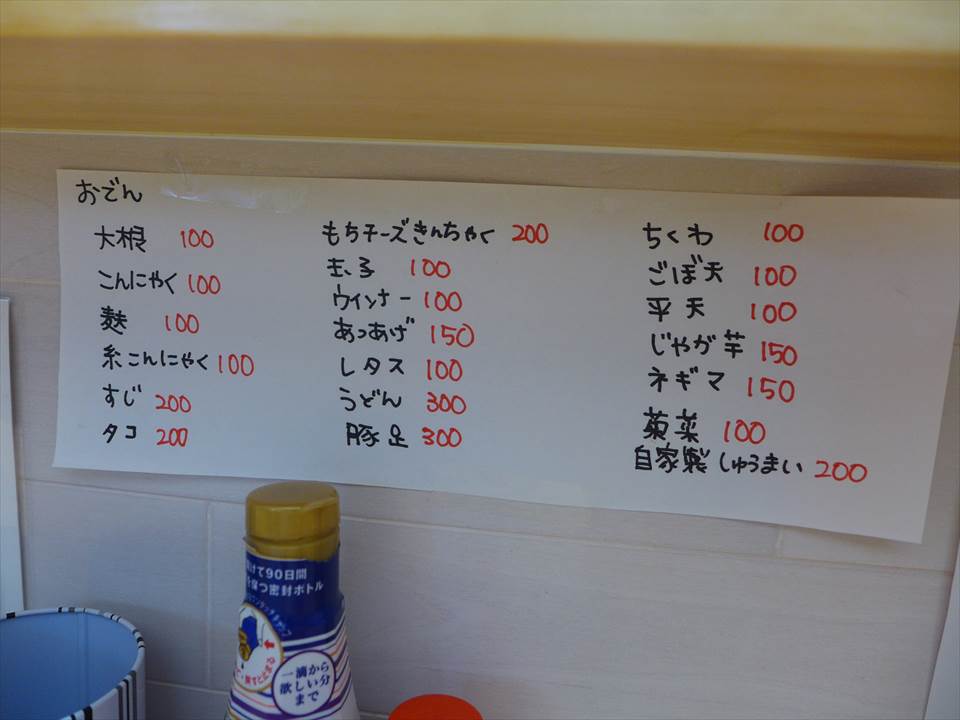 おでん
大根 100
こんにゃく 100
麩 100
糸こんにゃく 100
すじ 200
タコ 200
もちチーズきんちゃく 200
玉子 100
ウインナー 100
あつあげ 150
レタス 100
うどん 300
豚足 300
ちくわ 100
ごぼ天 100
平天 100
じゃが芋 150
ネギマ 150
菊菜 100
自家製しゅうまい 200
けて90日間
を保つ密封ボトル
一滴から
欲しい分
まで